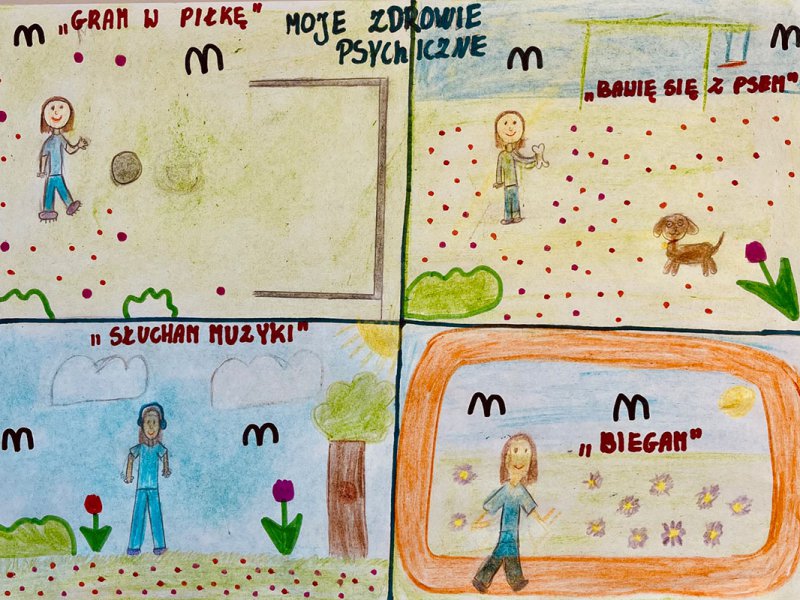 „GRAM W PIŁKĘ"
MOJE ZDROWIE
PSYCHICZNE
„BAWIĘ SIĘ Z PSEM"
„SŁUCHAM MUZYKI"
„BIEGAM"